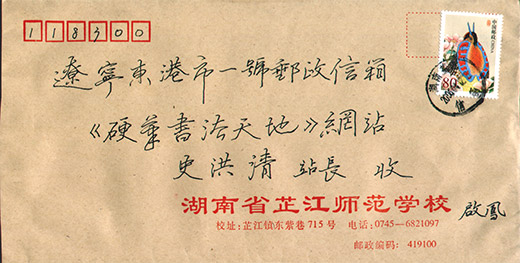 118300
遼寧東港市一號郵政信箱
《硬笔書法天地》網站
史洪清 站長 收
湖南省芷江师范学校
啟鳳
校址:芷江镇东紫巷715号 电话:0745—6821097
邮政编码: 419100
中国邮政
80
湖南